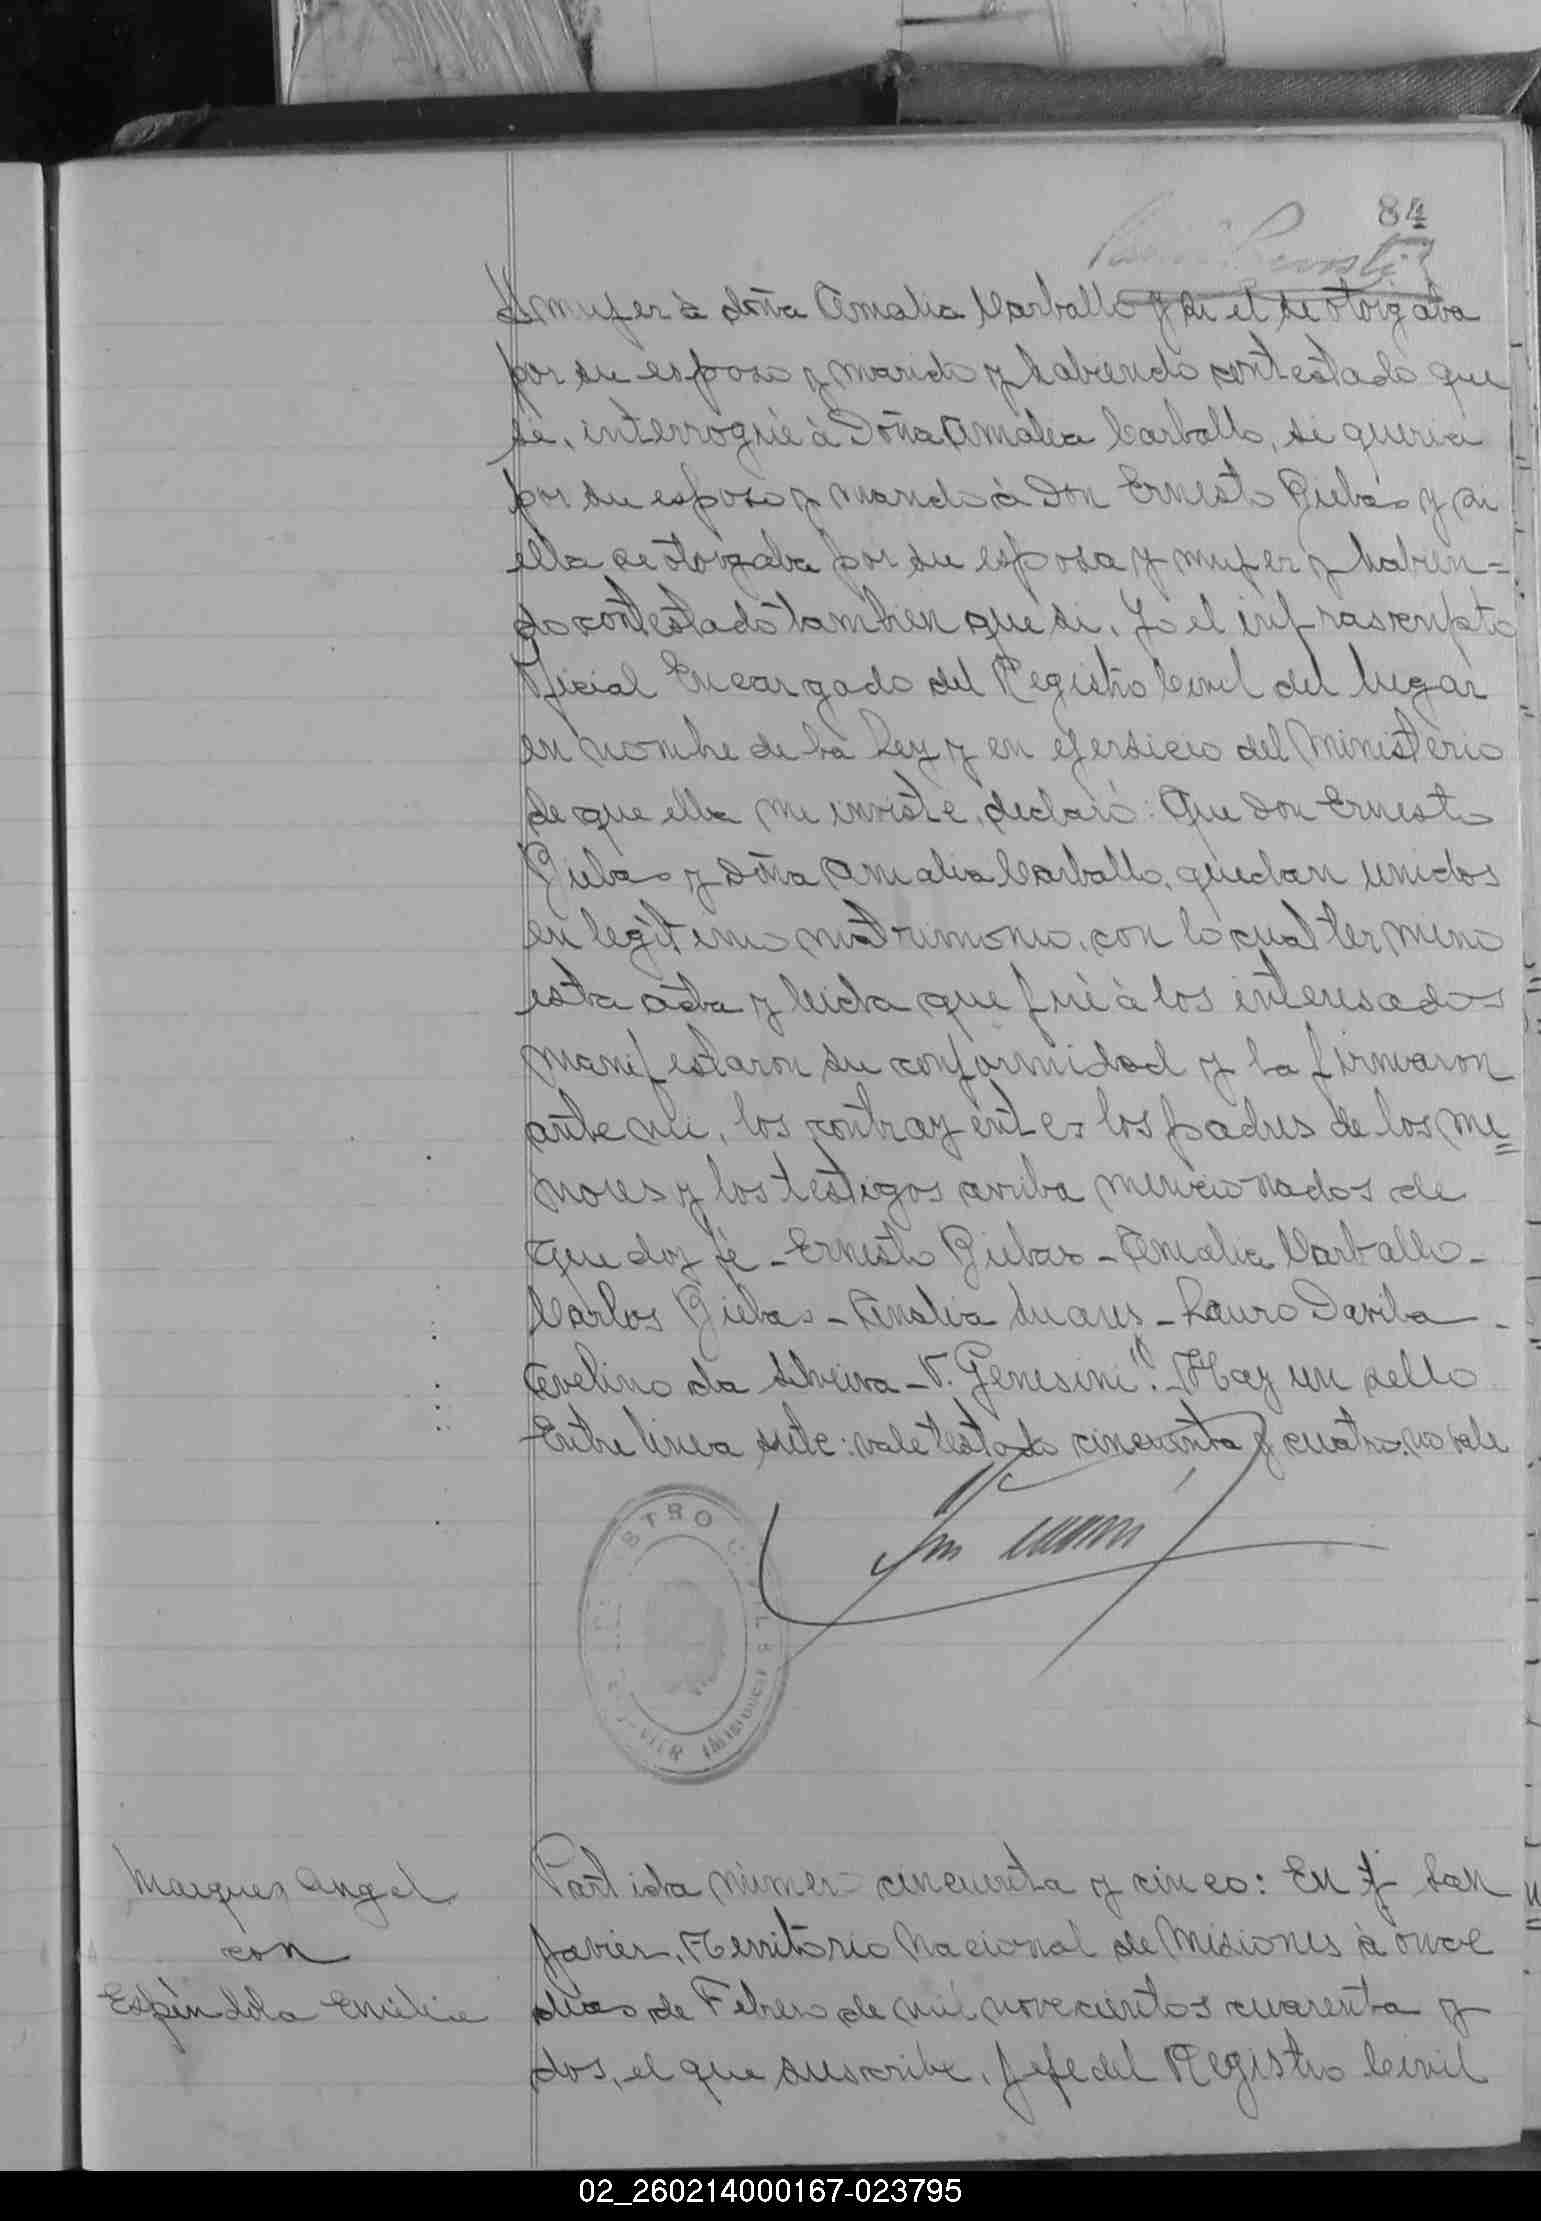 84
y mujer à doña Amalia Carballo y si el se otorgaba
por su esposo y marido y habiendo contestado que
si, interrogué à Doña Amalia Carballo, si queria
por su esposo y marido à Don Ernesto Giebas y si
ella se otorgaba por su esposa y mujer y habien=
do contestado tambien que si. Yo el infrascripto
Oficial Encargado del Registro Civil del lugar
en nombre de la Ley y en ejersicio del Ministerio
de que ella me inviste, declaro: Que Don Ernesto
Giebas y Doña Amalia Carballo, quedan unidos
en legitimo matrimonio, con lo cual termino
esta acta y leida que fué à los interesados
manifestaron su conformidad y la firmaron
ante mi, los contrayentes los padres de los me=
nores y los testigos arriba mencionados de
que doy fé - Ernesto Giebas - Amalia Carballo -
Carlos Giebas - Analia Suares - Lauro Davila -
Avelino da Silveira - V. Genesini". - Hay un sello
Entre linea siete: vale testado cincuenta y cuatro: no vale
REGISTRO CIVIL
JAVIER MISIONES
Marques Angel
con
Espindola Emilia
Partida número cincuenta y cinco: En San
Javier, Territorio Nacional de Misiones à once
dias de Febrero de mil novecientos cuarenta y
dos, el que suscribe, Jefe del Registro Civil
02_260214000167-023795